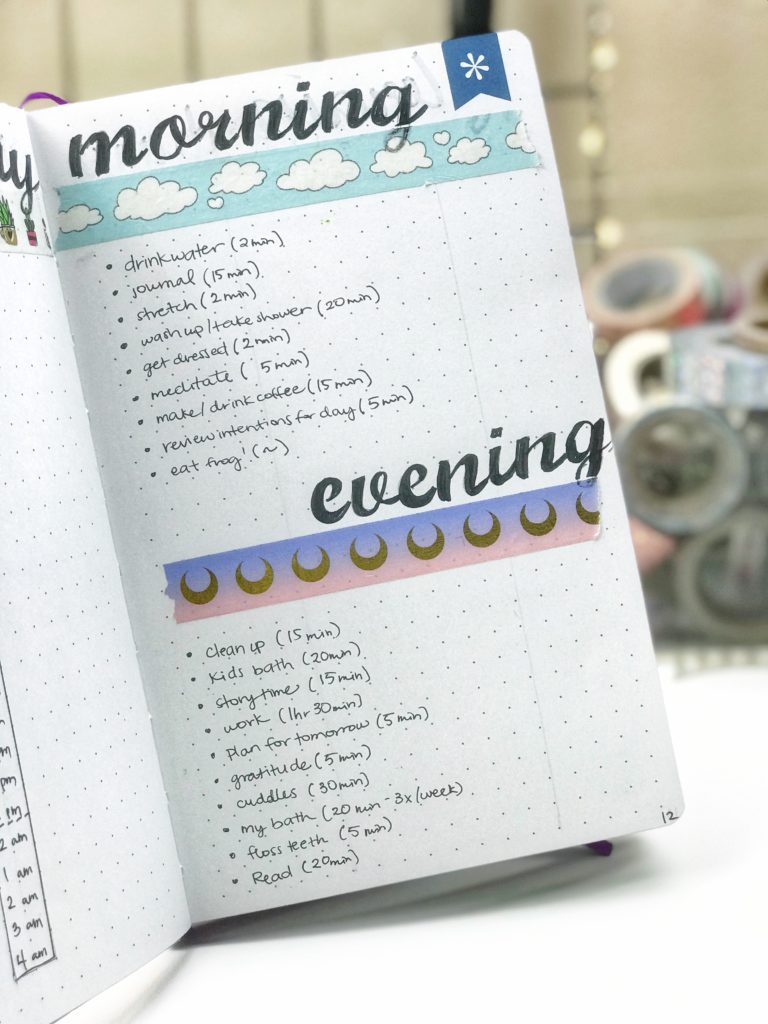 morning
• drink water (2 min)
• journal (15 min)
• stretch (2 min)
• wash up/take shower (20 min)
• get dressed (2 min)
• meditate ( 5 min)
• make/drink coffee (15 min)
• review intentions for day (5 min)
• eat frog! (~)
evening
• clean up (15 min)
• Kids bath (20 min)
• story time (15 min)
• work (1hr 30 min)
• plan for tomorrow (5 min)
• gratitude (5 min)
• cuddles (30 min)
• my bath (20 min - 3x/week)
• floss teeth (5 min)
• Read (20 min)
12
pm
1 am
2 am
3 am
4 am